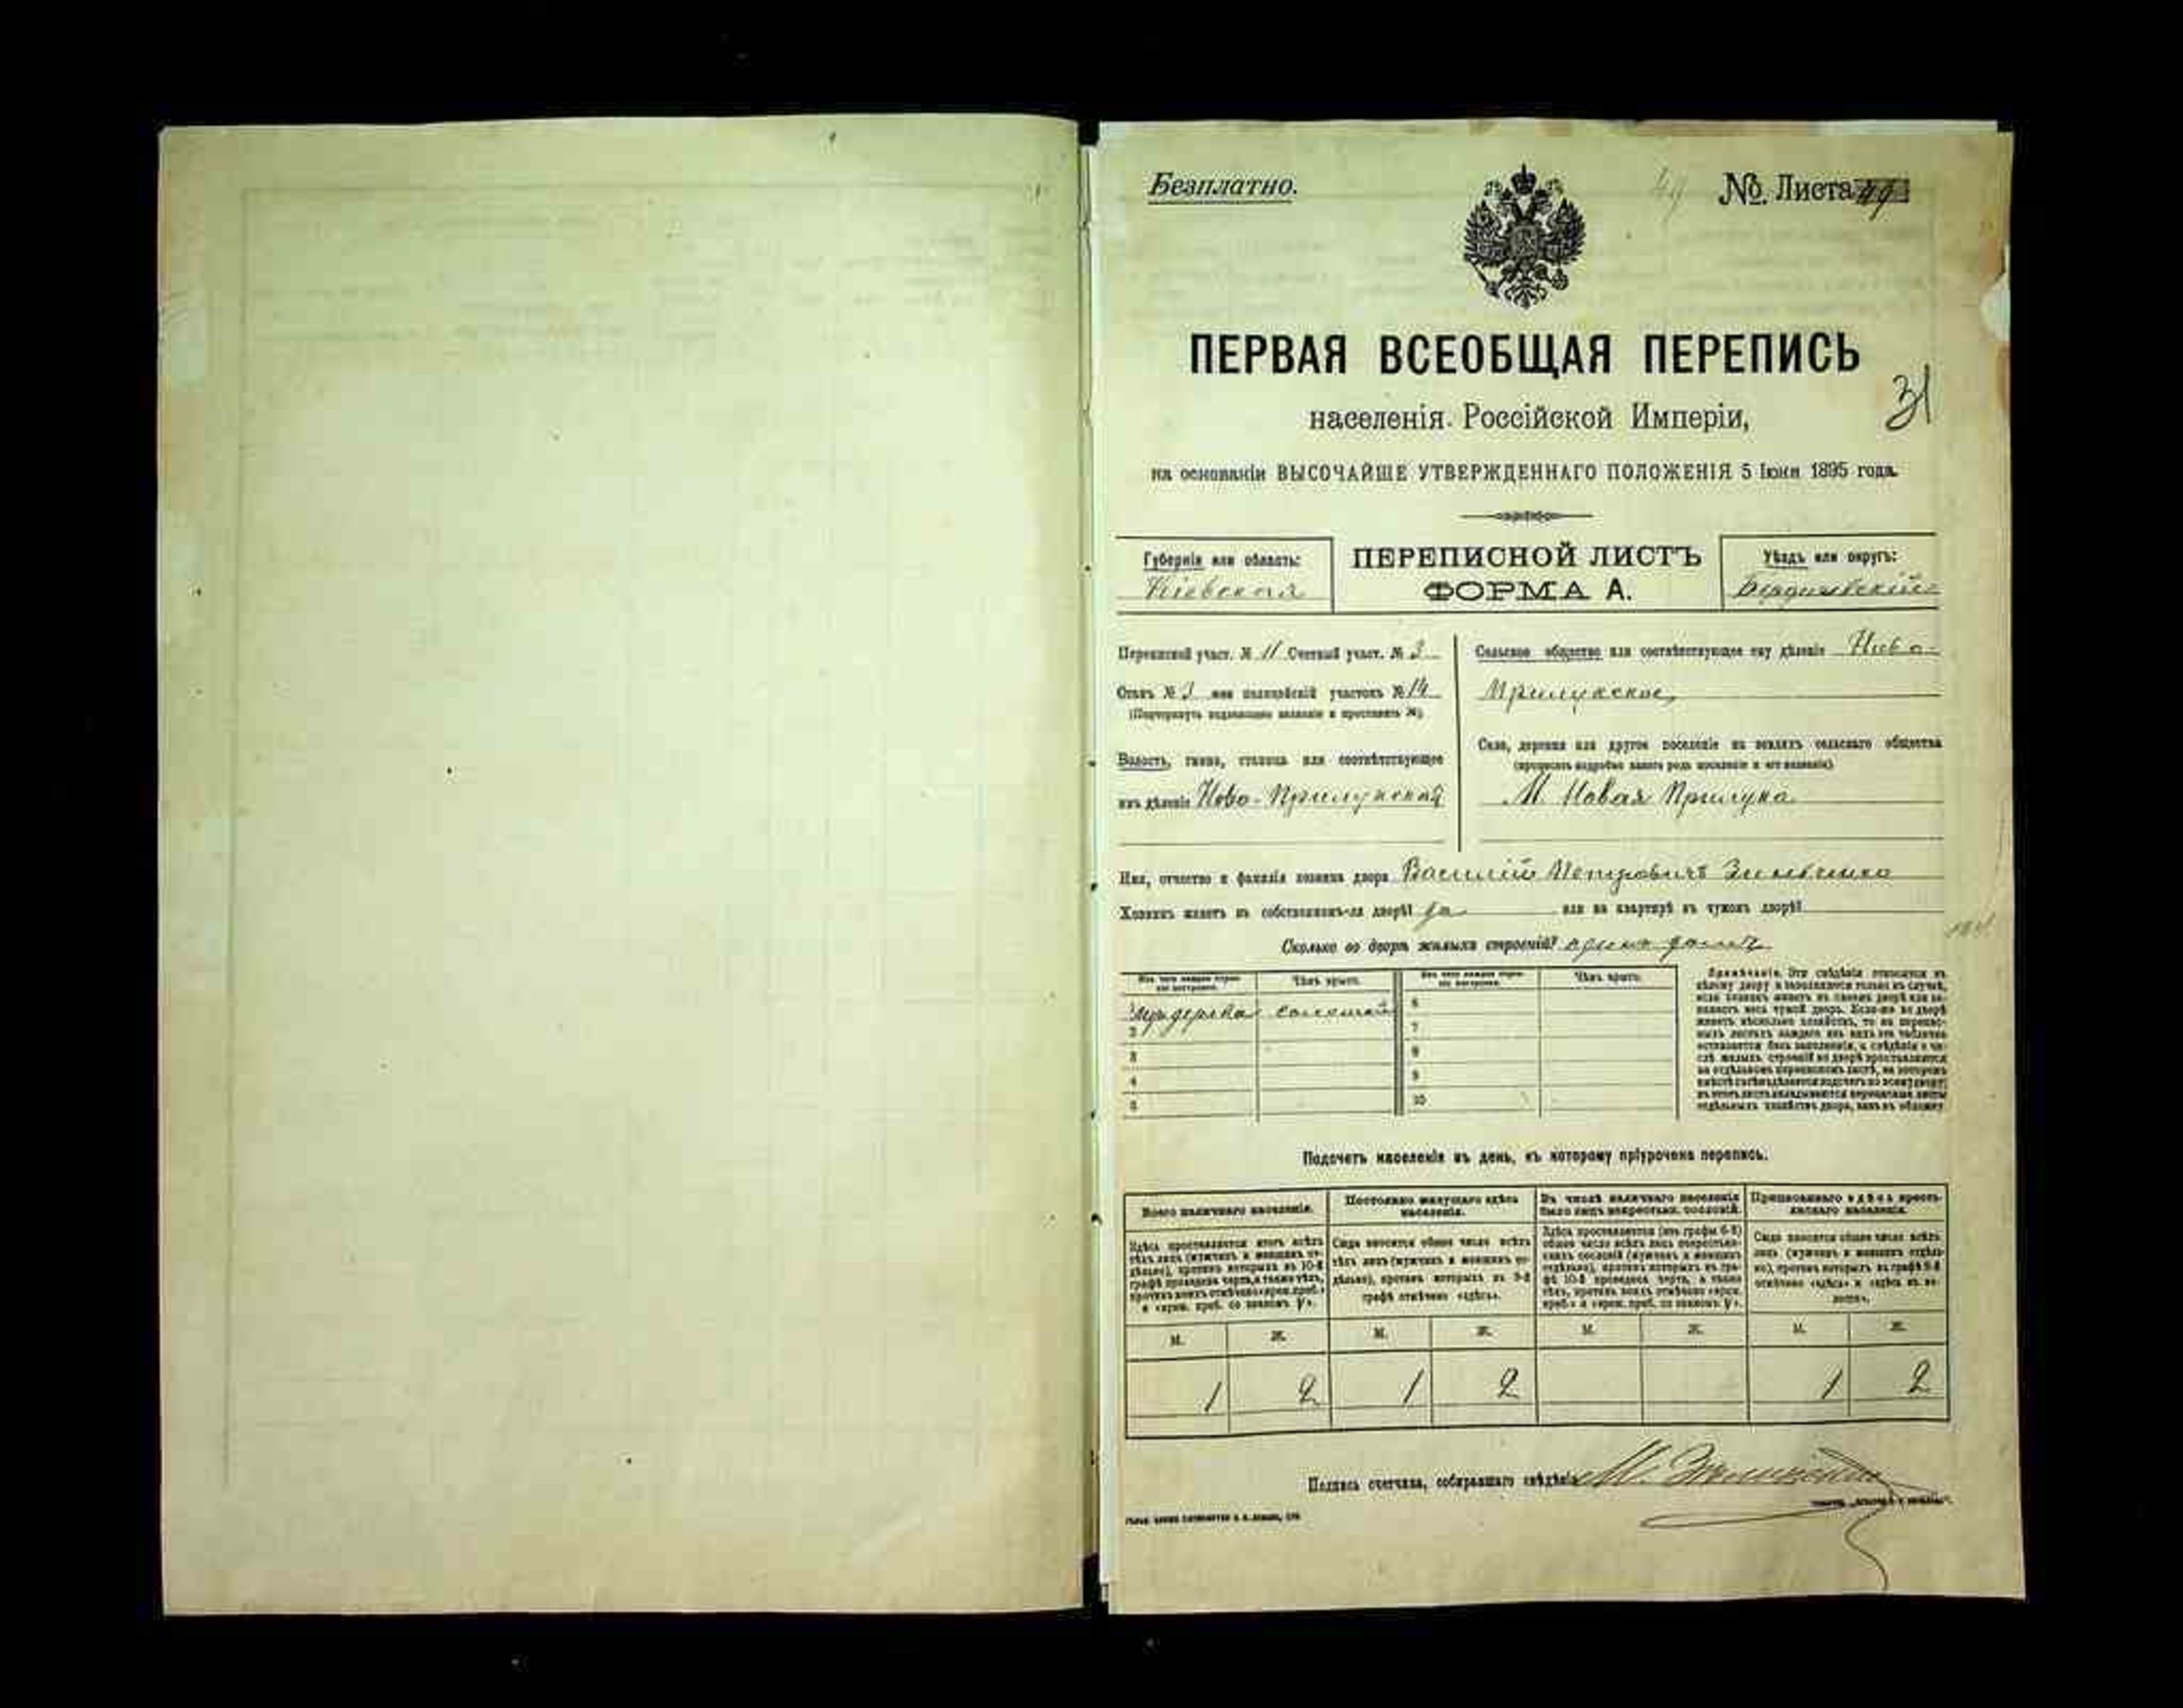 Безплатно.
49 № Листа 49
ПЕРВАЯ ВСЕОБЩАЯ ПЕРЕПИСЬ
31
населенія Россійской Имперіи,
на основаніи ВЫСОЧАЙШЕ УТВЕРЖДЕННАГО ПОЛОЖЕНІЯ 5 Іюня 1895 года.
Губернія или область:
Кіевская
ПЕРЕПИСНОЙ ЛИСТЪ
ФОРМА А.
Уѣздъ или округъ:
Бердичевскій
Переписной участ. № 11 Счетный участ. № 3
Станъ № 3 или полицейскій участокъ № 14
(Подчеркнуть надлежащее названіе и проставить №)
Волость, гмина, станица или соотвѣтствующее
имъ дѣленіе Ново-Прилукской
Сельское общество или соотвѣтствующее ему дѣленіе Ново-
Прилукское,
Село, деревня или другое поселеніе на земляхъ сельскаго общества
(прописать подробно какого рода поселеніе и его названіе).
М. Новая Прилука
Имя, отчество и фамилія хозяина двора Василій Петровичъ
Хозяинъ живетъ въ собственномъ-ли дворѣ? да или на квартирѣ въ чужомъ дворѣ?
Сколько во дворѣ жилыхъ строеній? одинъ домъ
Изъ чего каждое строеніе построено.
Чѣмъ крыто.
Изъ чего каждое строеніе построено.
Чѣмъ крыто.
1 изъ дерева соломой
2
3
4
5
6
7
8
9
10
Примѣчаніе. Эти свѣдѣнія относятся къ
цѣлому двору и заполняются только въ случаѣ,
если хозяинъ живетъ въ своемъ дворѣ или за-
нимаетъ весь чужой дворъ. Если-же во дворѣ
живетъ нѣсколько хозяйствъ, то на перепис-
ныхъ листахъ каждаго изъ нихъ эта табличка
оставляется безъ заполненія, а свѣдѣнія о чи-
слѣ жилыхъ строеній во дворѣ проставляются
на отдѣльномъ переписномъ листѣ, на которомъ
вмѣстѣ съ тѣмъ дѣлается подсчетъ по всему двору;
въ этотъ листъ вкладываются переписные листы
отдѣльныхъ хозяйствъ двора, какъ въ обложку.
Подсчетъ населенія въ день, къ которому пріурочена перепись.
Всего наличнаго населенія.
Здѣсь проставляется итогъ всѣхъ
тѣхъ лицъ (мужчинъ и женщинъ от-
дѣльно), противъ которыхъ въ 10-й
графѣ проведена черта, а также тѣхъ,
противъ коихъ отмѣчено «врем. преб.»
и «врем. преб. со знакомъ V».
Постоянно живущаго здѣсь
населенія.
Сюда вносится общее число всѣхъ
тѣхъ лицъ (мужчинъ и женщинъ от-
дѣльно), противъ которыхъ въ 9-й
графѣ отмѣчено «здѣсь».
Въ числѣ наличнаго населенія
было лицъ некрестьян. сословій.
Здѣсь проставляется (изъ графы 6-й)
общее число всѣхъ лицъ некрестьян-
скихъ сословій (мужчинъ и женщинъ
отдѣльно), противъ которыхъ въ гра-
фѣ 10-й проведена черта, а также
тѣхъ, противъ коихъ отмѣчено «врем.
преб.» и «врем. преб. со знакомъ V».
Приписаннаго здѣсь кресть-
янскаго населенія.
Сюда вносится общее число всѣхъ
лицъ (мужчинъ и женщинъ отдѣль-
но), противъ которыхъ въ графѣ 8-й
отмѣчено «здѣсь» и «здѣсь въ во-
лости».
М. Ж. М. Ж. М. Ж. М. Ж.
1 2 1 2 1 2
Подпись счетчика, собиравшаго свѣдѣнія